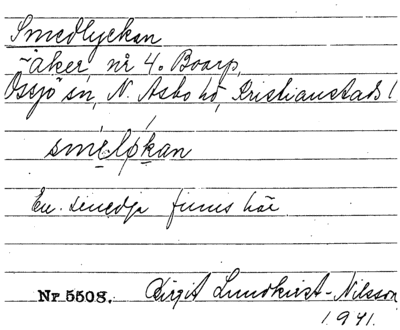 Smedlyckan
~åker, nr 4. Boarp,
Össjö sn, N. Åsbo hd, Kristianstads l
smelykan
En smedja finns här
Nr 5508. Birgit Lundkvist-Nilsson
1941.